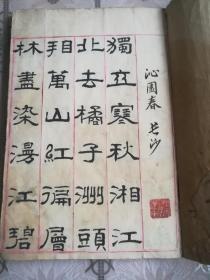 沁園春 长沙
獨立寒秋湘江
北去橘子洲頭
相萬山紅徧層
林盡染漫江碧